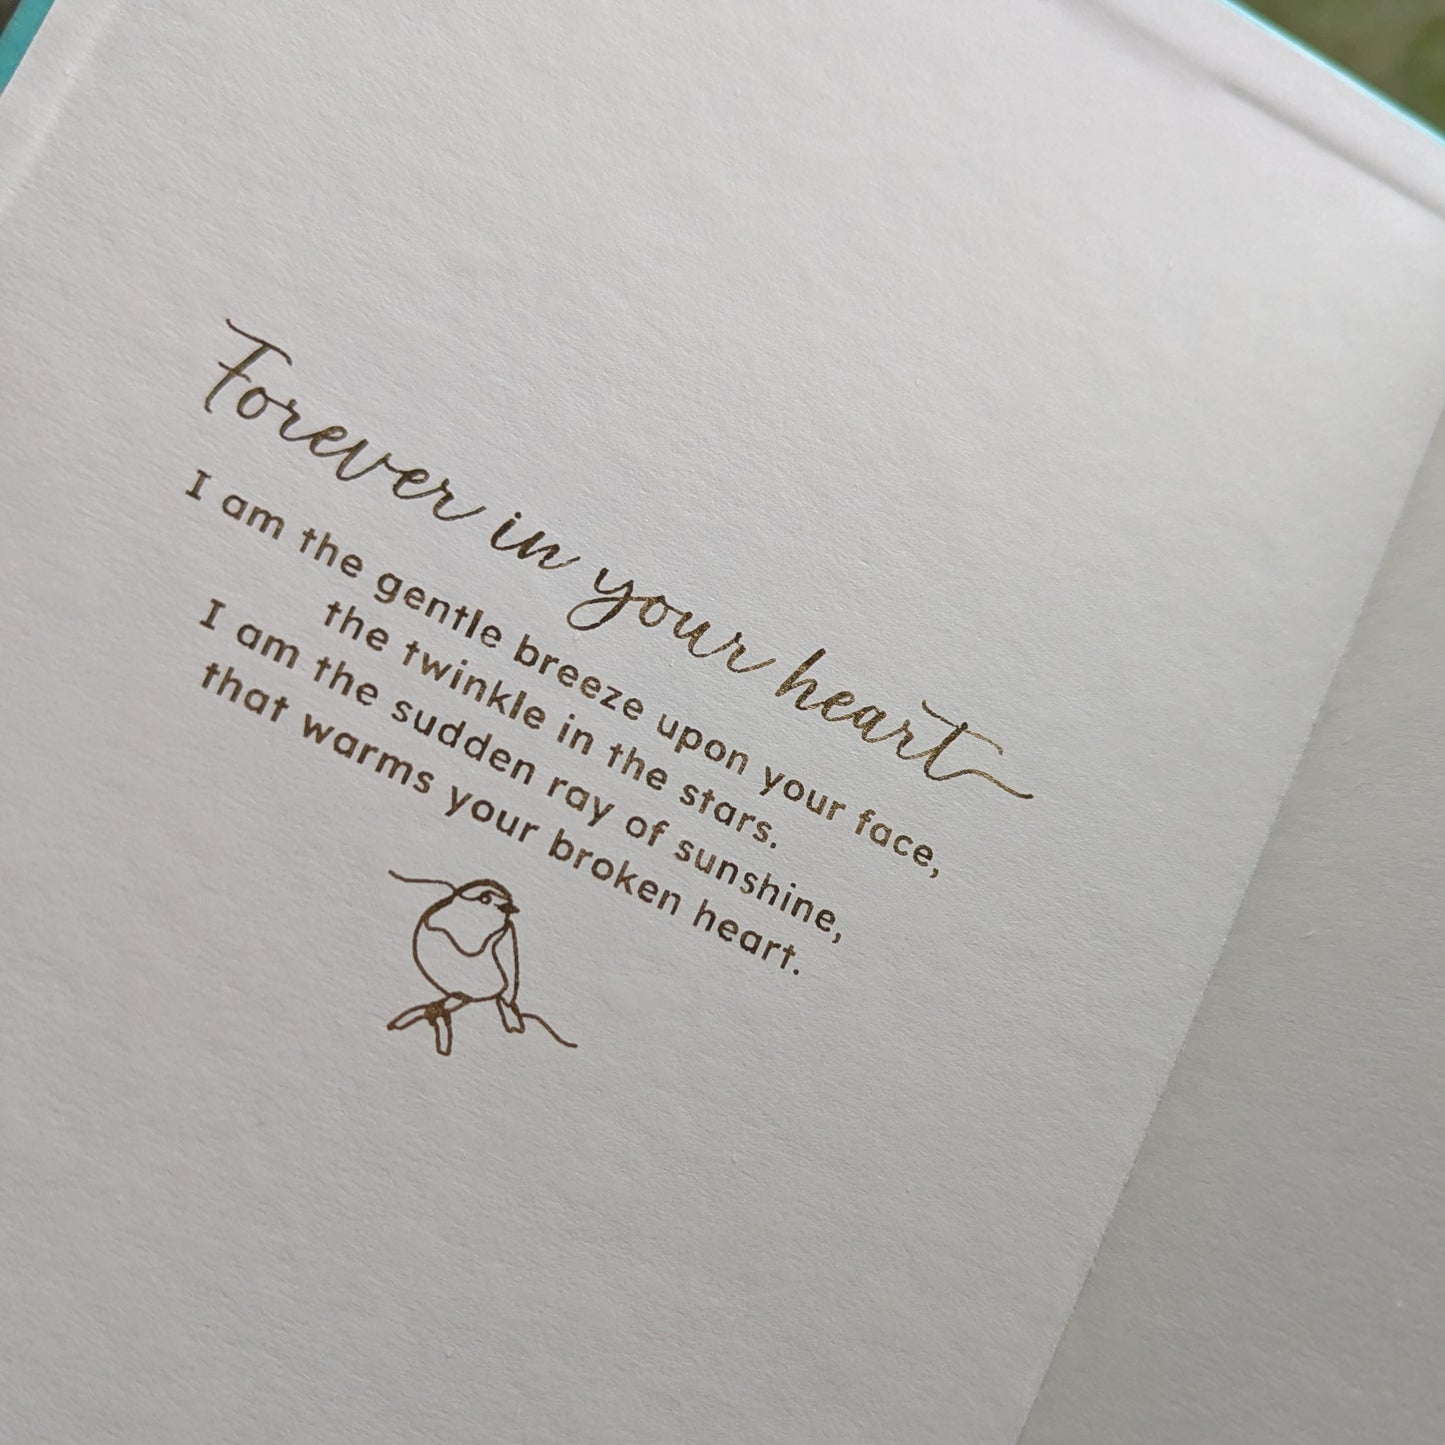 Forever in your heart
I am the gentle breeze upon your face,
the twinkle in the stars.
I am the sudden ray of sunshine,
that warms your broken heart.